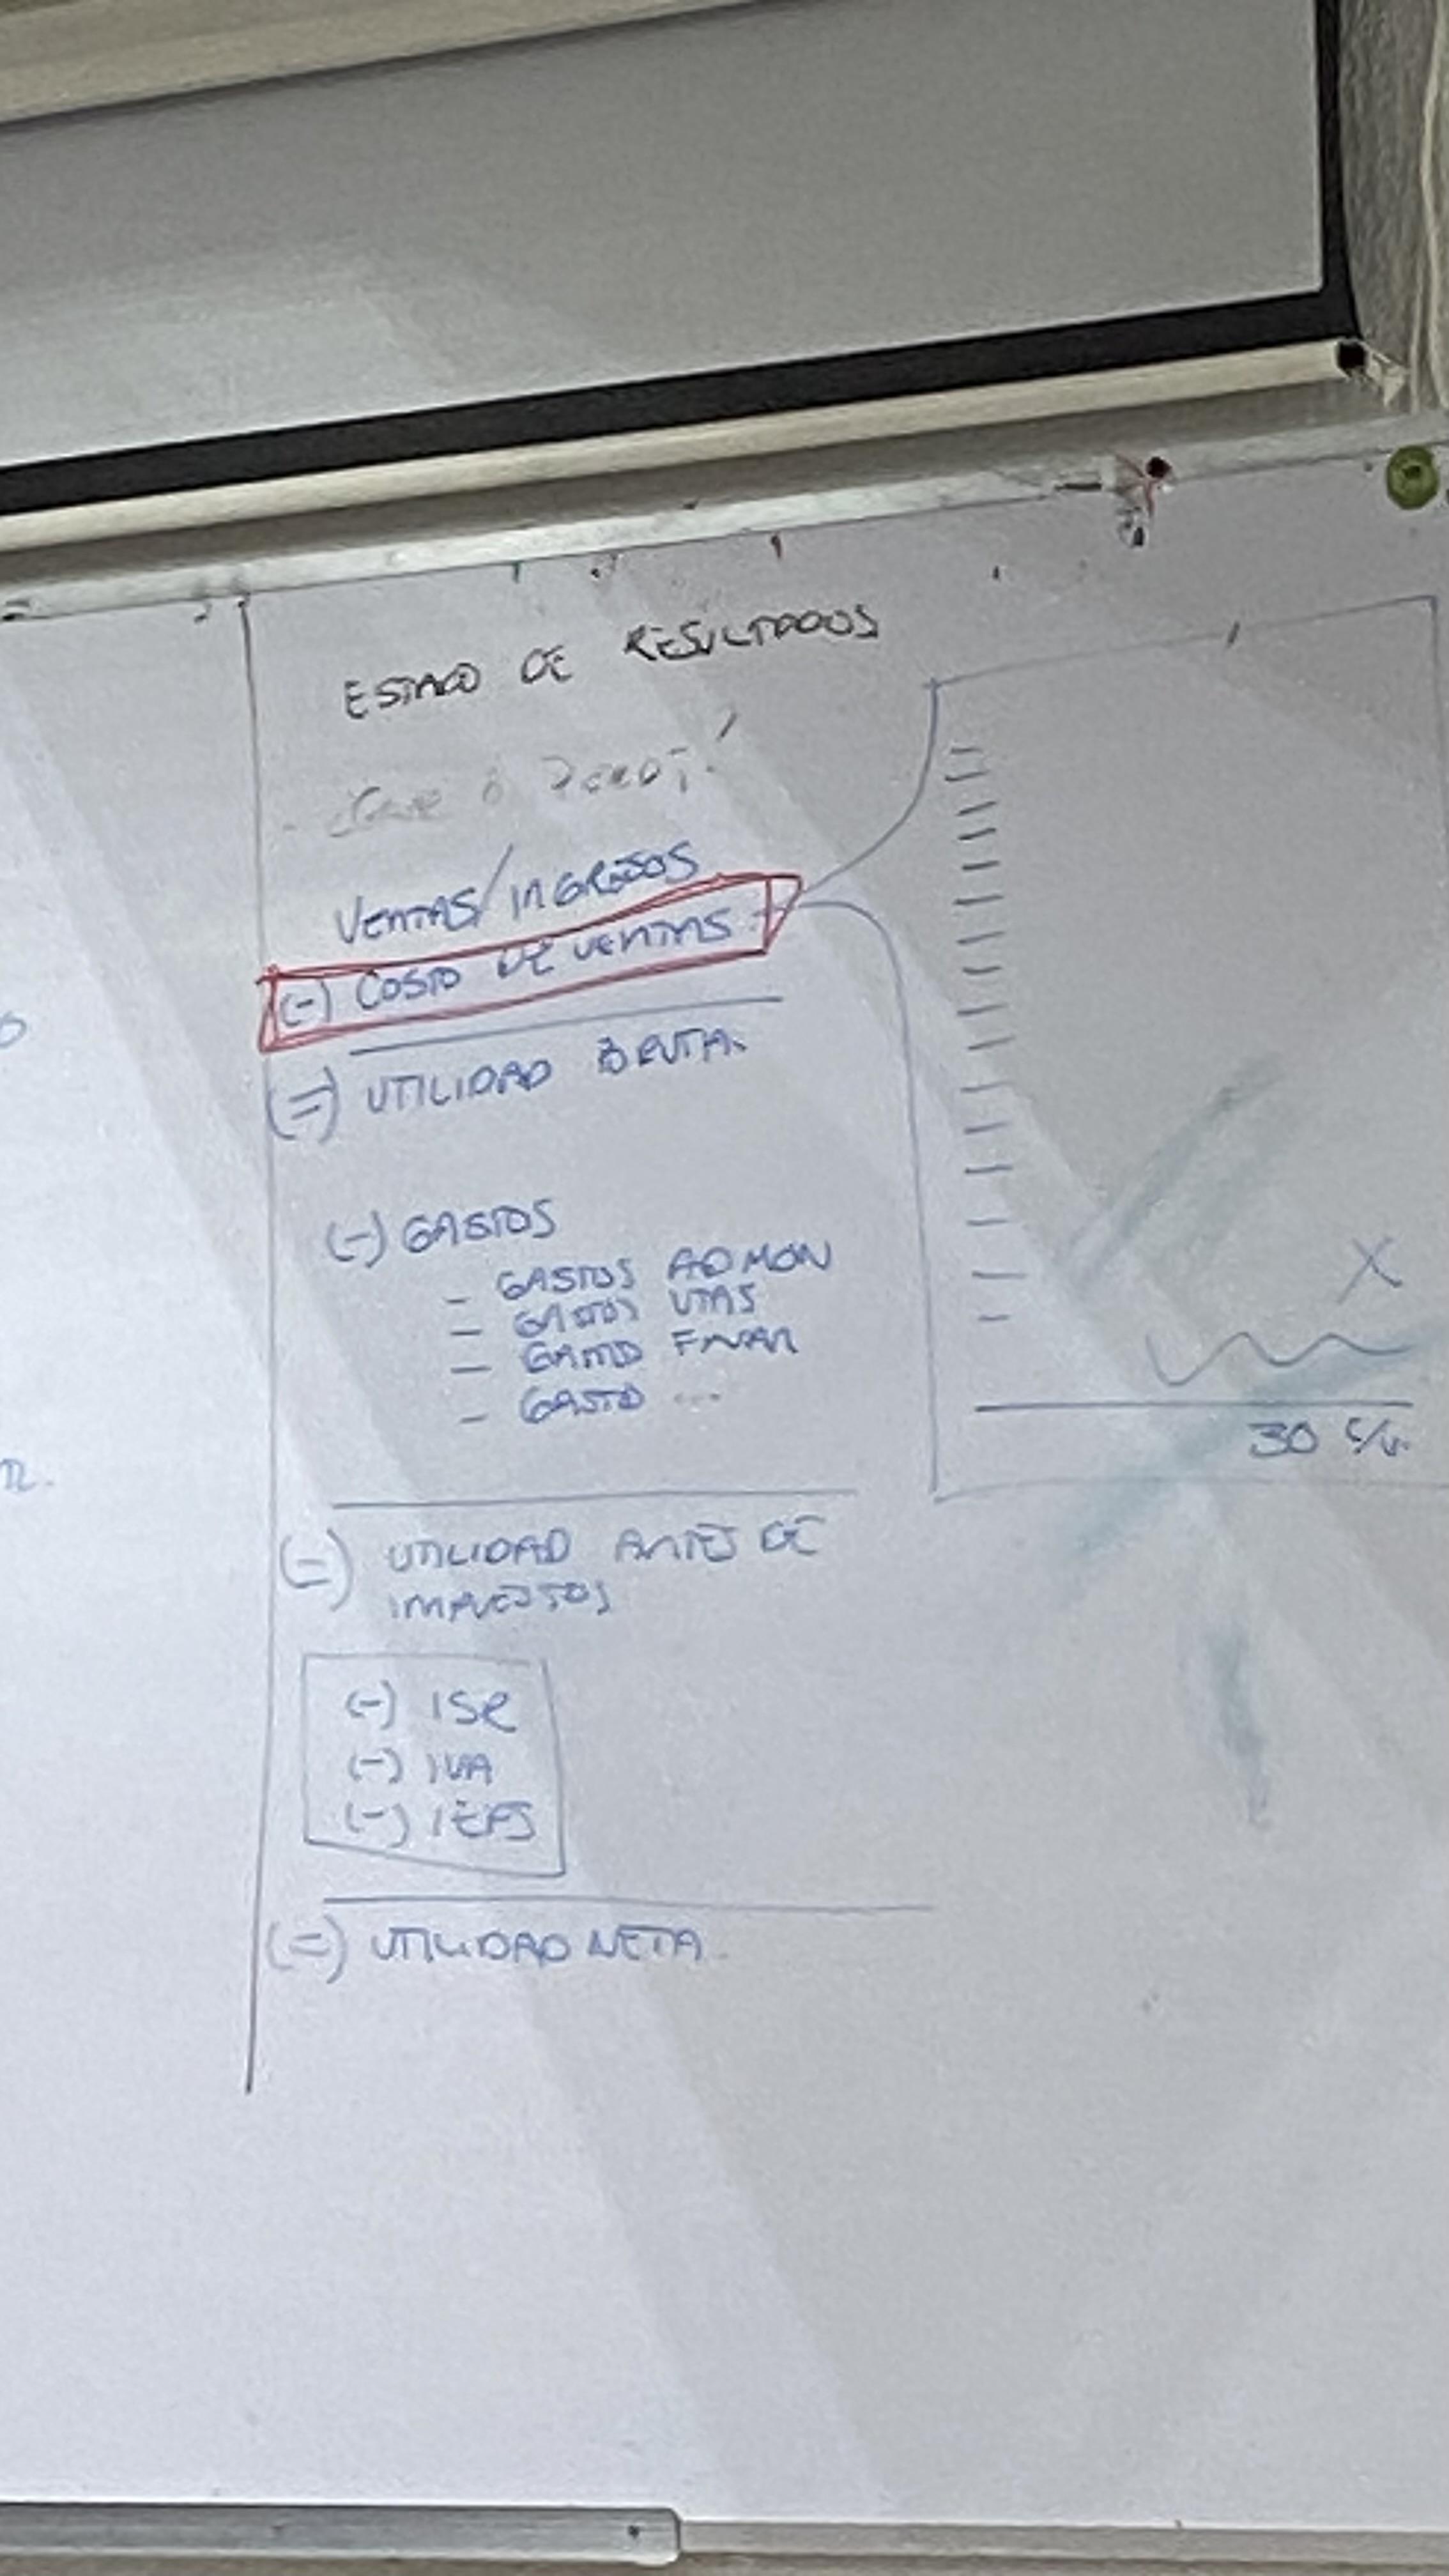 ESTADO DE RESULTADOS
VENTAS/INGRESOS
(-) COSTO DE VENTAS
(=) UTILIDAD BRUTA
(-) GASTOS
- GASTOS ADMON
- GASTOS VTAS
- GASTO FINAN
- GASTO ...
(=) UTILIDAD ANTES DE
IMPUESTOS
(-) ISR
(-) IVA
(-) IEPS
(=) UTILIDAD NETA
X
30 C/V.